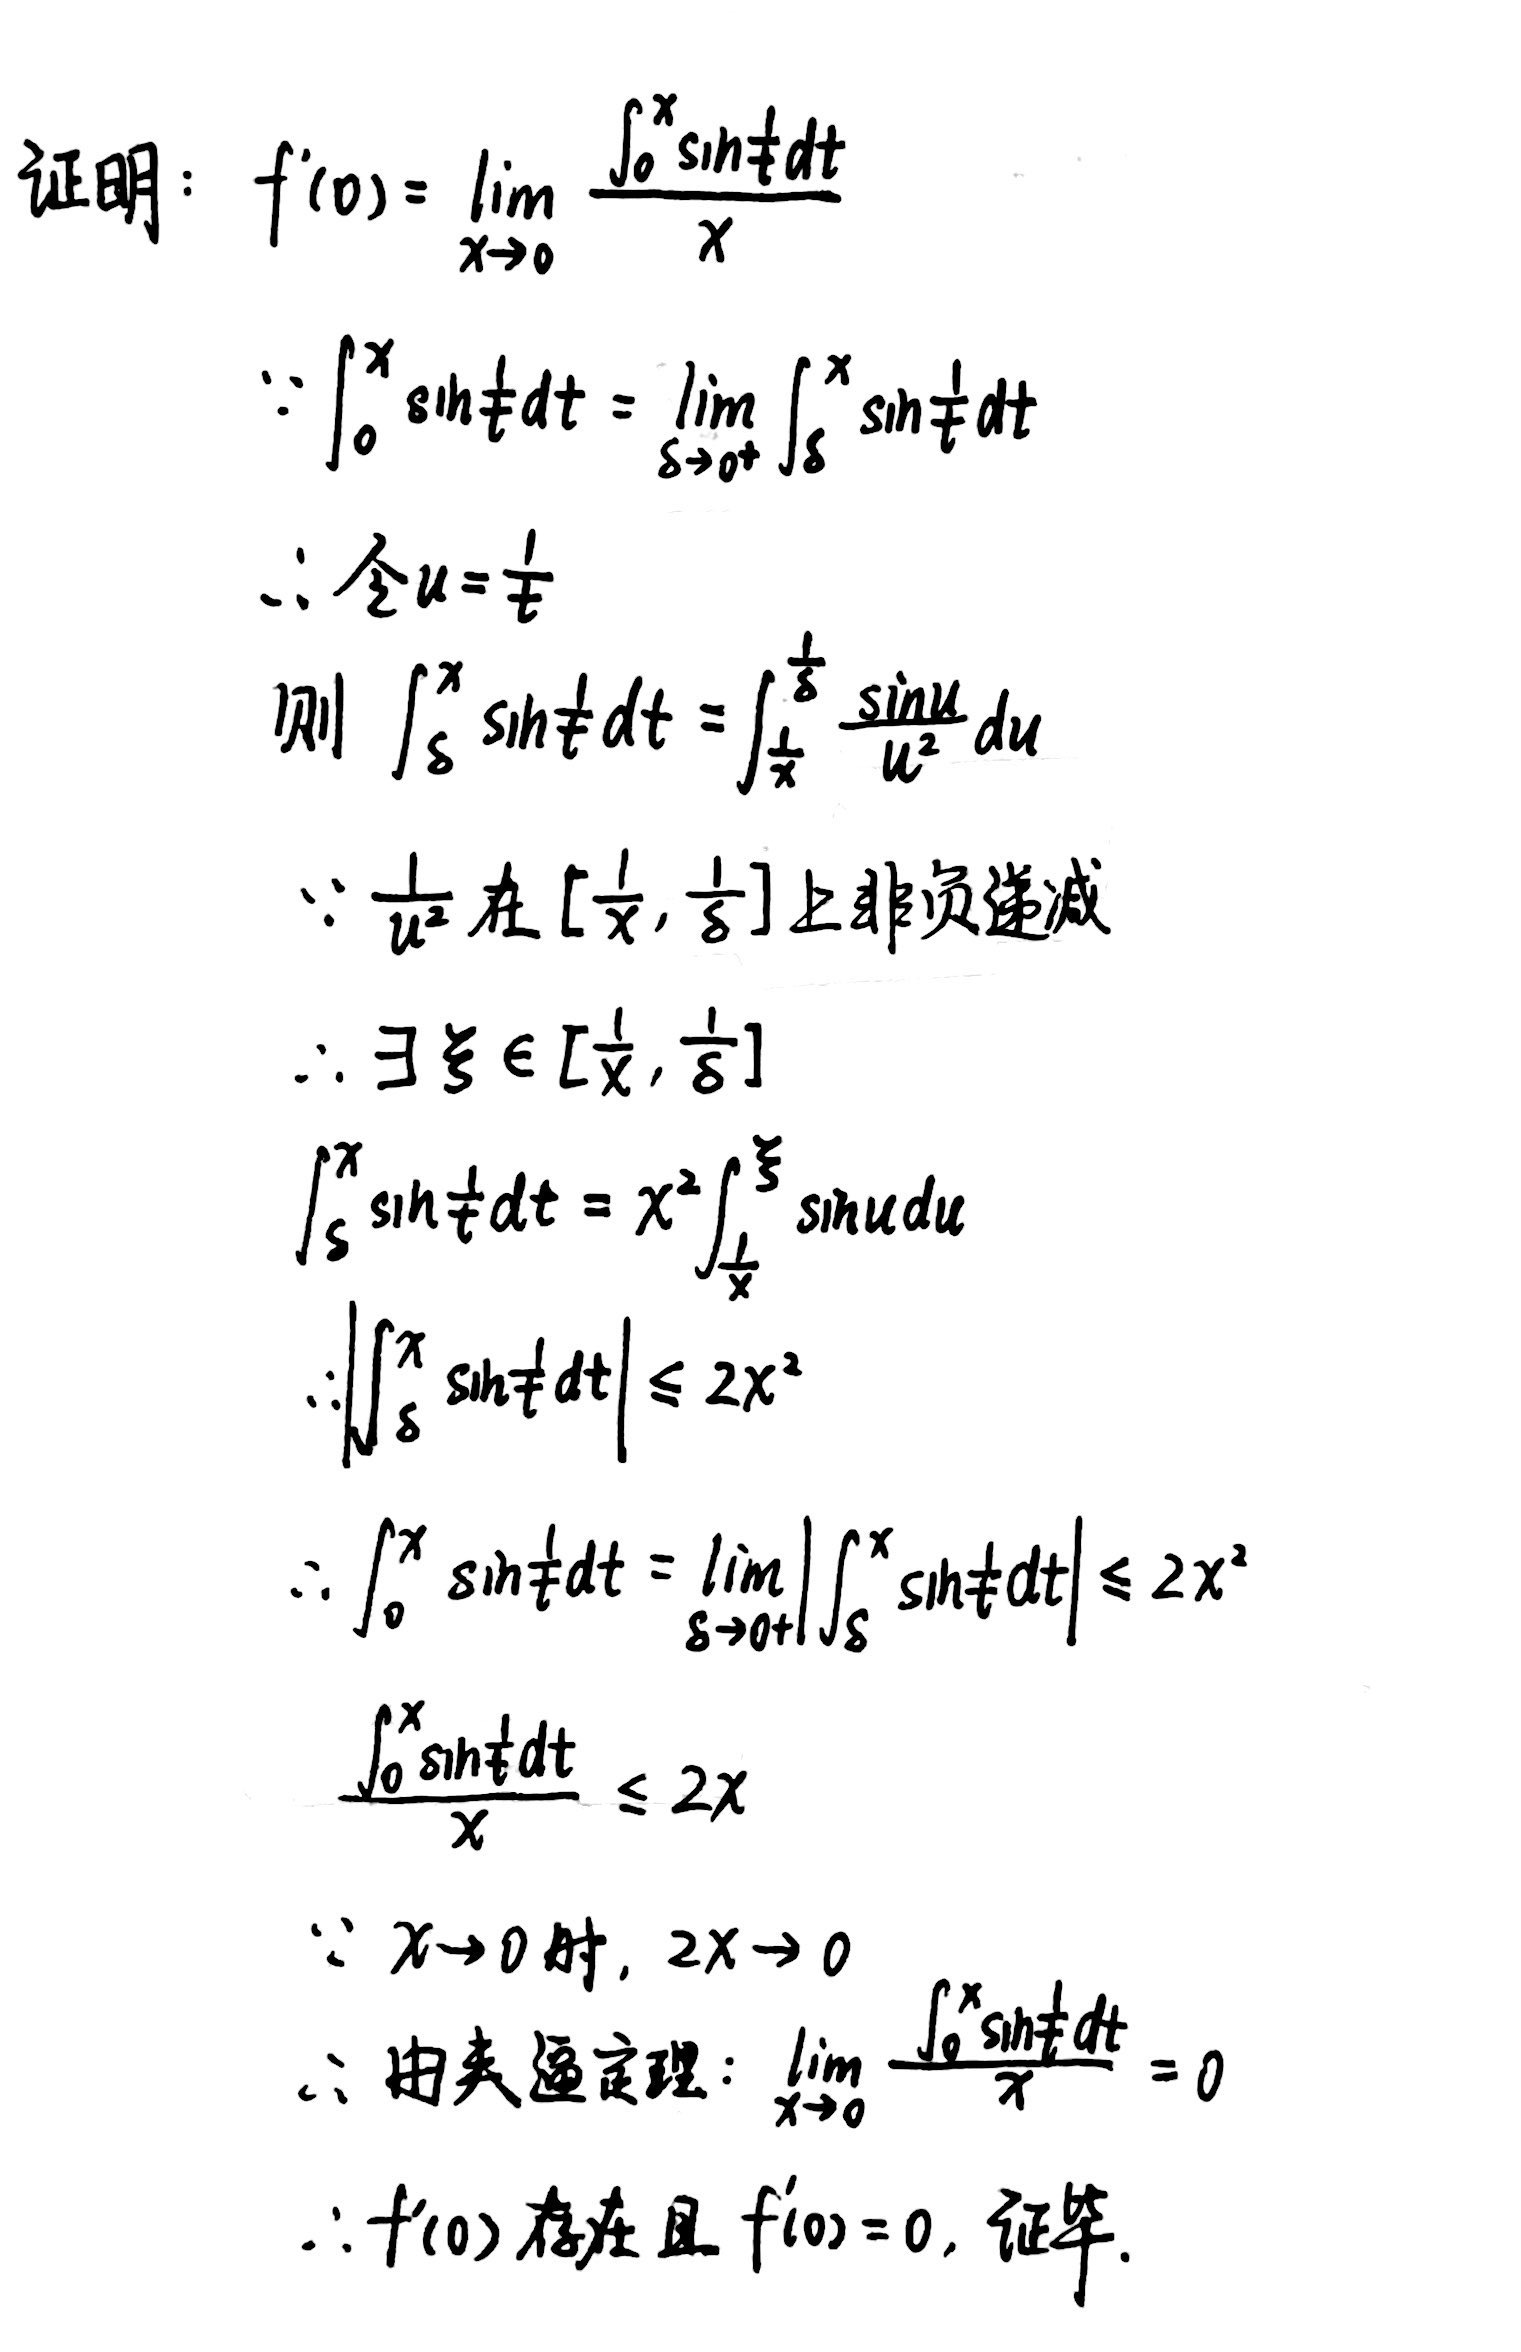 证明: f'(0) = lim_{x→0} \frac{∫_0^x sin\frac{1}{t}dt}{x}
∵ ∫_0^x sin\frac{1}{t}dt = lim_{δ→0+} ∫_δ^x sin\frac{1}{t}dt
∴ 令u=\frac{1}{t}
则 ∫_δ^x sin\frac{1}{t}dt = ∫_{\frac{1}{x}}^{\frac{1}{δ}} \frac{sinu}{u^2}du
∵ \frac{1}{u^2} 在 [\frac{1}{x}, \frac{1}{δ}] 上非负递减
∴ ∃ ξ ∈ [\frac{1}{x}, \frac{1}{δ}]
∫_δ^x sin\frac{1}{t}dt = x^2 ∫_{\frac{1}{x}}^ξ sinudu
∴ |∫_δ^x sin\frac{1}{t}dt| ≤ 2x^2
∴ ∫_0^x sin\frac{1}{t}dt = lim_{δ→0+} |∫_δ^x sin\frac{1}{t}dt| ≤ 2x^2
\frac{∫_0^x sin\frac{1}{t}dt}{x} ≤ 2x
∵ x→0时, 2x→0
∴ 由夹逼定理: lim_{x→0} \frac{∫_0^x sin\frac{1}{t}dt}{x} = 0
∴ f'(0)存在且 f'(0)=0, 证毕.